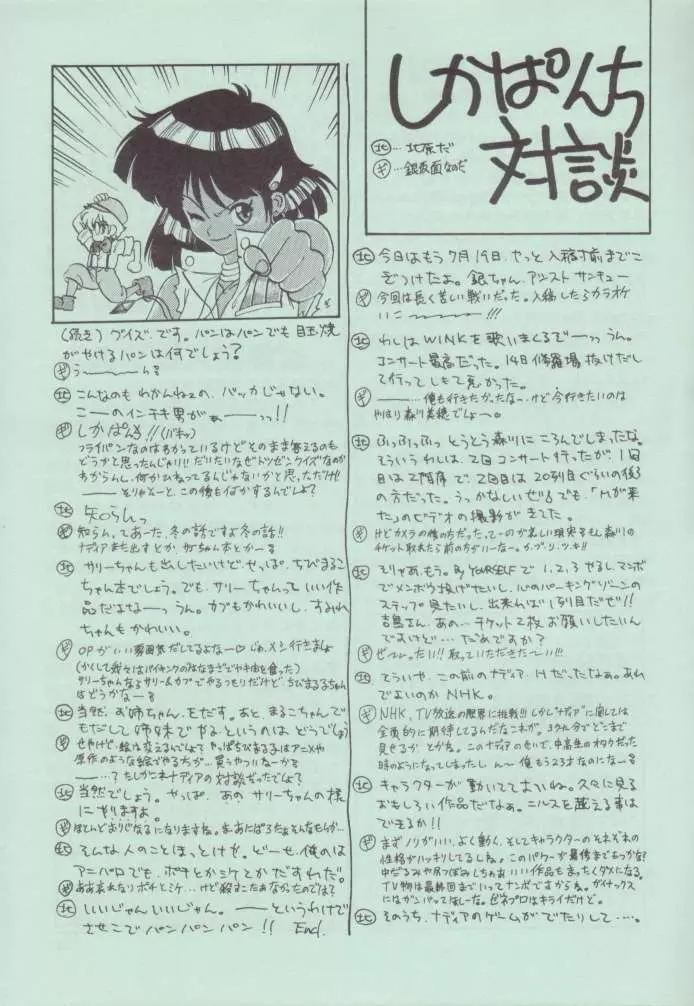 しかぱんち
対談
北…北原だ
ギ…銀仮面なのだ
北 今日はもう7月19日、やっと入稿寸前までこ
ぎつけたよ。銀ちゃん、アシストサンキュー
ギ 今回は長く苦しい戦いだった。入稿したらカラオケ
いこーーー!!!
北 わしはWINKを歌いまくるでーーっっうん。
コンサート最高だった。14日修羅場抜けだし
て行ってしもて良かった。
ギ ーーー、俺も行きたかったなー、けど今行きたいのは
やはり森川美穂でしょーー。
北 ふっふっふっとうとう森川にころんでしまったな。
そういうわしは、2回コンサート行ったが、1回
目は2階席で、2回目は20列目ぐらいの後ろ
の方だった。うっかなしいぜ!!でも、「Mが来
た」のビデオの撮影がきてた。
ギ けどカメラの後の方だった、てーのが悲しい現実さもん森川の
チケット取れたら前の方がいーなー。か・ブ・リ・ツ・キ!!
北 そりゃあ、もう。By YOURSELFで1,2,3やるし、マンボ
でメンボウ投げたいし、心のパーキングゾーンの
ステップ見たいし、出来れば1列目だぜ!!
吉島さん、あの…チケット2枚お願いしたいん
ですけど…だめですか?
ギ ぜーったい!!取っていただきたーい!!!
北 そういや、この前のナディア、Hだったなぁ。あれ
でよいのかNHK。
ギ NHK、TV放送の限界に挑戦!!しかし"ナディア"に関しては
全面的に期待してるんだなこれが。3クール分でどこまで
見せるかとかね。このナディアのせいで、中高生のオタクだった
時のようになってしまったしん〜俺もう23才なのになーる
北 キャラクターが動いててよいね。久々に見る
おもしろい作品だなぁ。ニルスを越える事は
できるか!!
ギ まずノリがいい、よく動く、そしてキャラクターのそれぞれの
性格がハッキリしてるしね。このパワーが最後まであっかな?
中だるみや尻つぼみしちゃあいい作品もまったくダメになる。
TV物は最終回までいってナンボですからね。ガイナックス
にはガンバってほしーな。ゼネプロはキライだけど。
北 そのうち、ナディアのゲームがでたりして…。
(続き)クイズです。パンはパンでも目玉焼
がやけるパンは何でしょう?
ギ うーーーーんる
北 こんなのもわかんねェの、バッカじゃない。
こーのインチキ男がぁーーっっ!!
ギ しかぱんち!!(バキッ)
フライパンなのはわかっているけどそのまま答えるのも
どうかと思ったんじゃ!!だいたいなぜトツゼンクイズなのか
わからんし、何かひねってるんじゃないかと思っただけ!!
ーーそりゃそーと、この後も何かするんでしょ?
北 知らんっ
ギ 知らん、てあーた、冬の話ですよ冬の話!!
ナディアまた出すとか、サリーちゃん本とかーる
北 サリーちゃんも出したいけど、やっぱ、ちびまるこ
ちゃん本でしょう。でも、サリーちゃんっていい作
品だよなーーっうん。カブもかわいいし、すみれ
ちゃんもかわいい。
ギ OPがいい雰囲気だしてるよなー♡じゃ、メシ行きましょ
(かくして我々はバイキングのみなまぎでヤキ肉を食った)
サリーちゃんならサリー&カブでやるつもりだけど、ちびまる子ちゃん
はどうかなーる
北 当然、お姉ちゃん、をだす。あと、まるこちゃんで
もだして姉妹でやる、というのはどうでしょう
ギ せやけど、絵は変えるんでしょ?やっぱちびまる子はアニメや
原作のような絵でやる方が…買うやついなーか?
ーー…?たしかこれナディアの対談だったでしょ?
北 当然でしょう。やっぱ、あのサリーちゃんの様
にやりますよ。
ギ ほとんどおりじなるになりますね。まーあにぱろだぁそんなもんか…
北 そんな人のことほっとけを。どーせ、俺のは
アニパロでも、ポチとかミケとかだすわだ。
ギ ああ哀れなりポチとミケ…けど殺すこたぁなかったのでは?
北 いいじゃんいいじゃん。ーーというわけで
させこでパンパンパン!! End.